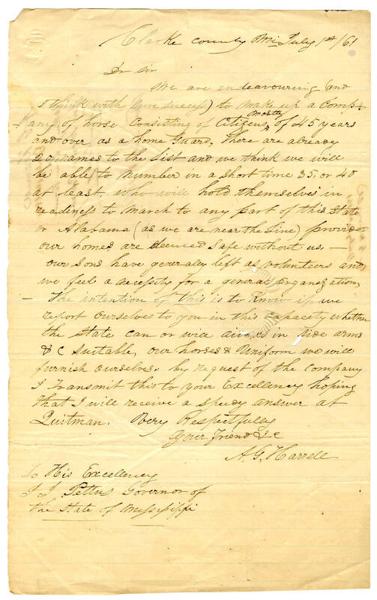 Clarke county Mi July 1st /61
Dr Sir
We are endeavouring (and
I think with sure success) to make up a Comp-
any of horse Consisting of Citizens mostly of 45 years
and over as a home Guard, There are already
names to the list and we think we will
be able to number in a short time 35 or 40
at least. Who will hold themselves in
readiness to March to any part of this State
or Alabama (as we are near the line) provided
our homes are deemed safe without us. —
our sons have generally left as volunteers and
we feel a necessity for a general organization,
— The intention of this is to know if we
report ourselves to you in this capacity whether
the State can or will give us in side arms
& C suitable, our horses & Uniform we will
furnish ourselves. by request of the company
I transmit this to your Excellency hoping
that I will receive a speedy answer at
Quitman. Very Respectfully
Your Friend &c
A, G, Harrell
To His Excellency
J J Pettus Governor of
the State of Mississippi